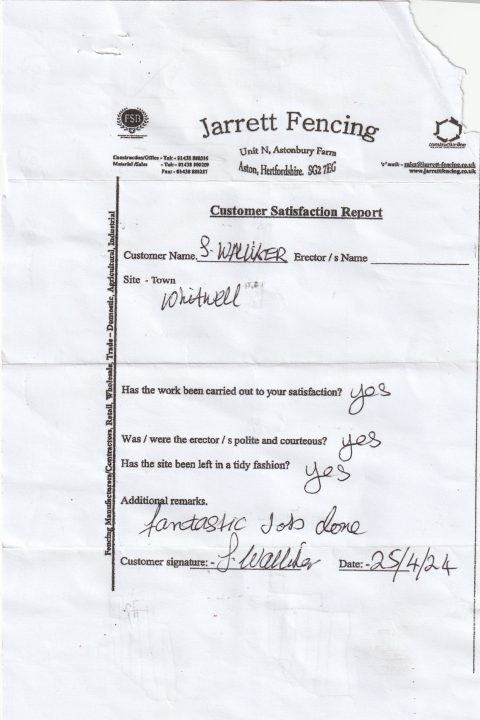 FSB
Jarrett Fencing
Unit N, Astonbury Farm
Aston, Hertfordshire. SG2 7EG
constructionline
Construction/Office - Tel: - 01438
Material /Sales - Tel: - 01438
Fax: - 01438
'e' mail: - sales@jarrett-fencing.co.uk
www.jarrettfencing.co.uk
Customer Satisfaction Report
Customer Name. S. WALLIKER Erector / s Name
Site - Town
Whitwell
Has the work been carried out to your satisfaction? yes
Was / were the erector / s polite and courteous? yes
Has the site been left in a tidy fashion? yes
Additional remarks.
fantastic Job done
Customer signature: - S. Walliker Date: - 25/4/24
Fencing Manufacturers/Contractors, Retail, Wholesale, Trade – Domestic, Agricultural, Industrial